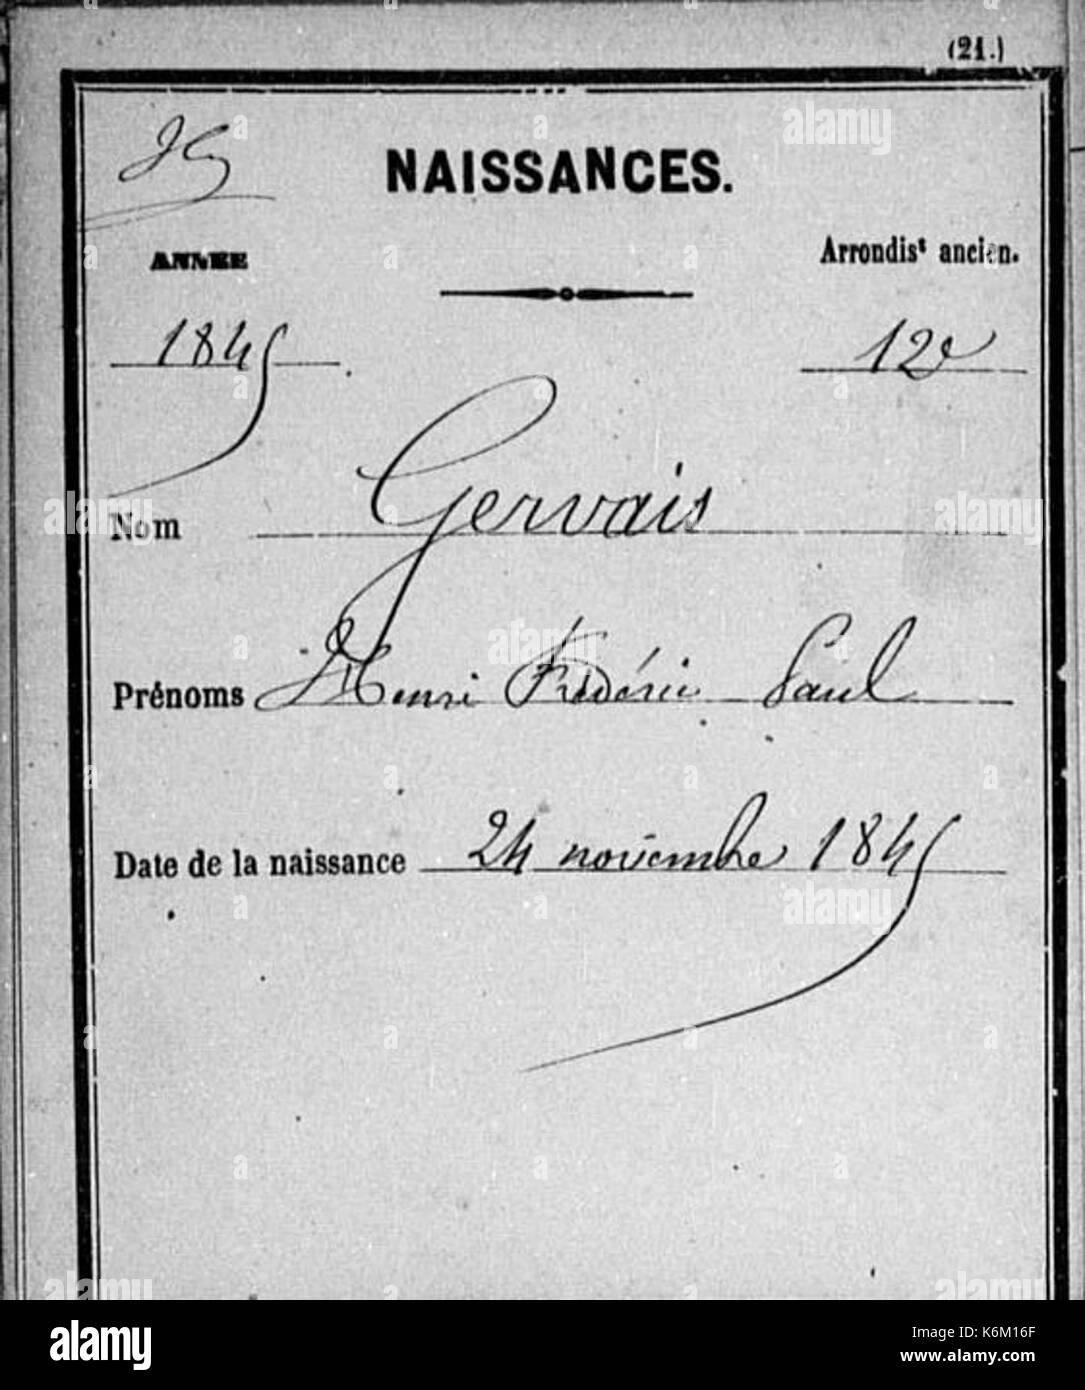 (21.)
NAISSANCES.
ANNÉE
Arrondis^t ancien.
1845
12e
Nom Gervais
Prénoms Henri Frédéric Paul
Date de la naissance 24 novembre 1845
alamy
Image ID: K6M16F
www.alamy.com